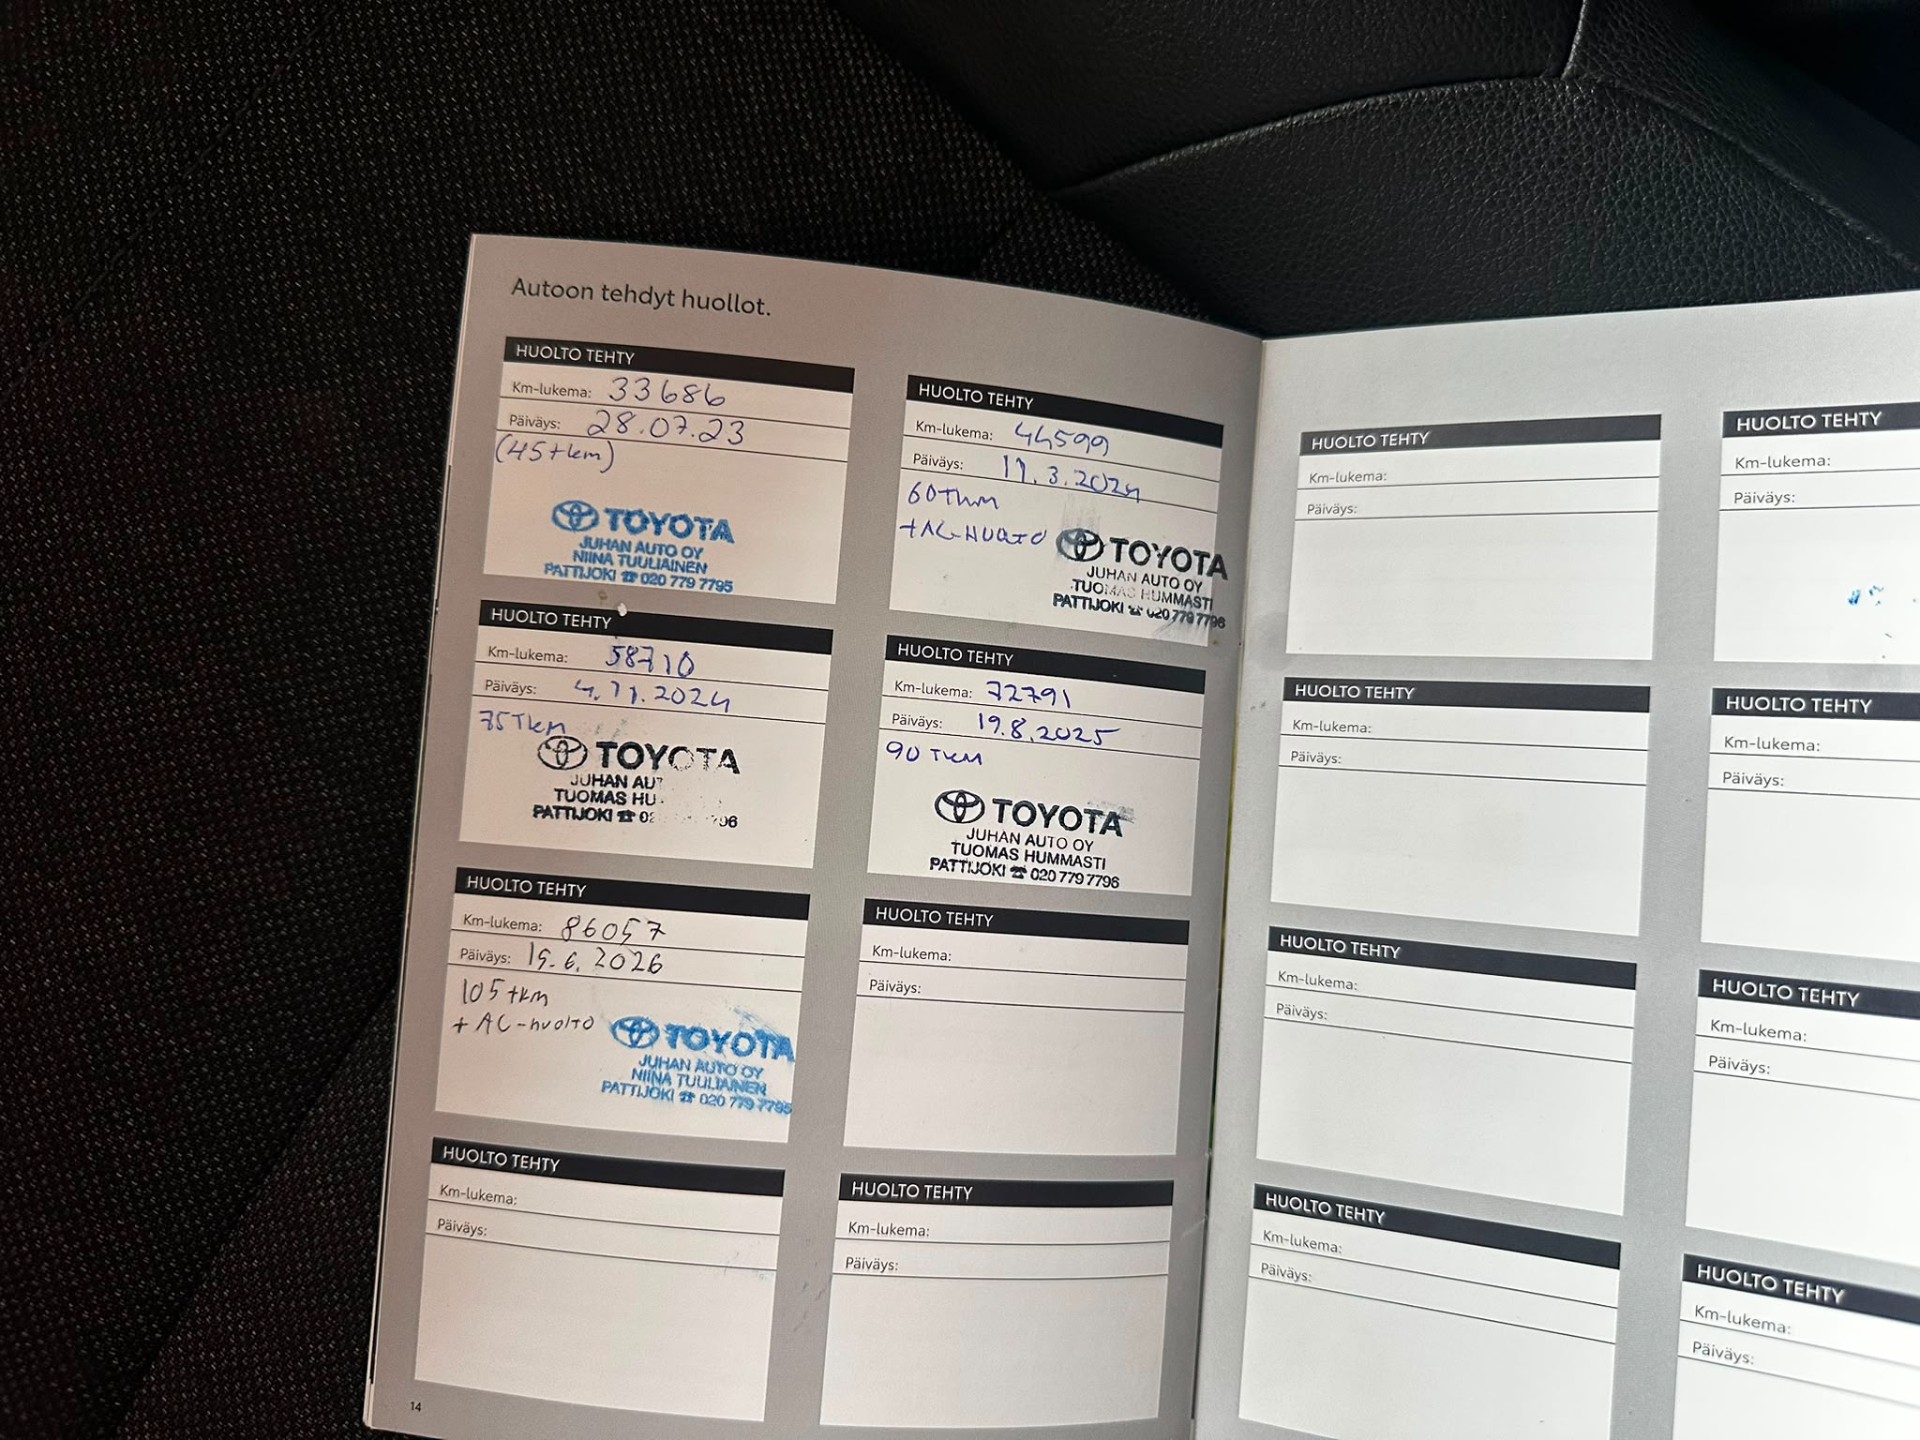 Autoon tehdyt huollot.
HUOLTO TEHTY
Km-lukema: 33686
Päiväys: 28.07.23
(45tkm)
TOYOTA
JUHAN AUTO OY
NIINA TUULIAINEN
PATTIJOKI ☎ 020 779 7795
HUOLTO TEHTY
Km-lukema: 44599
Päiväys: 11.3.2024
60Tkm
+AC-HUOLTO
TOYOTA
JUHAN AUTO OY
TUOMAS HUMMASTI
PATTIJOKI ☎ 020 779 7796
HUOLTO TEHTY
Km-lukema: 58710
Päiväys: 4.11.2024
75Tkm
TOYOTA
JUHAN AUT
TUOMAS HU
PATTIJOKI ☎ 02 796
HUOLTO TEHTY
Km-lukema: 72791
Päiväys: 19.8.2025
90 TKM
TOYOTA
JUHAN AUTO OY
TUOMAS HUMMASTI
PATTIJOKI ☎ 020 779 7796
HUOLTO TEHTY
Km-lukema: 86057
Päiväys: 15.6.2026
105 tkm
+ AC-huolto
TOYOTA
JUHAN AUTO OY
NIINA TUULIAINEN
PATTIJOKI ☎ 020 779 7795
HUOLTO TEHTY
Km-lukema:
Päiväys:
HUOLTO TEHTY
Km-lukema:
Päiväys:
HUOLTO TEHTY
Km-lukema:
Päiväys:
14
HUOLTO TEHTY
Km-lukema:
Päiväys:
HUOLTO TEHTY
Km-lukema:
Päiväys:
HUOLTO TEHTY
Km-lukema:
Päiväys:
HUOLTO TEHTY
Km-lukema:
Päiväys:
HUOLTO TEHTY
Km-lukema:
Päiväys:
HUOLTO TEHTY
Km-lukema:
Päiväys:
HUOLTO TEHTY
Km-lukema:
Päiväys:
HUOLTO TEHTY
Km-lukema:
Päiväys: